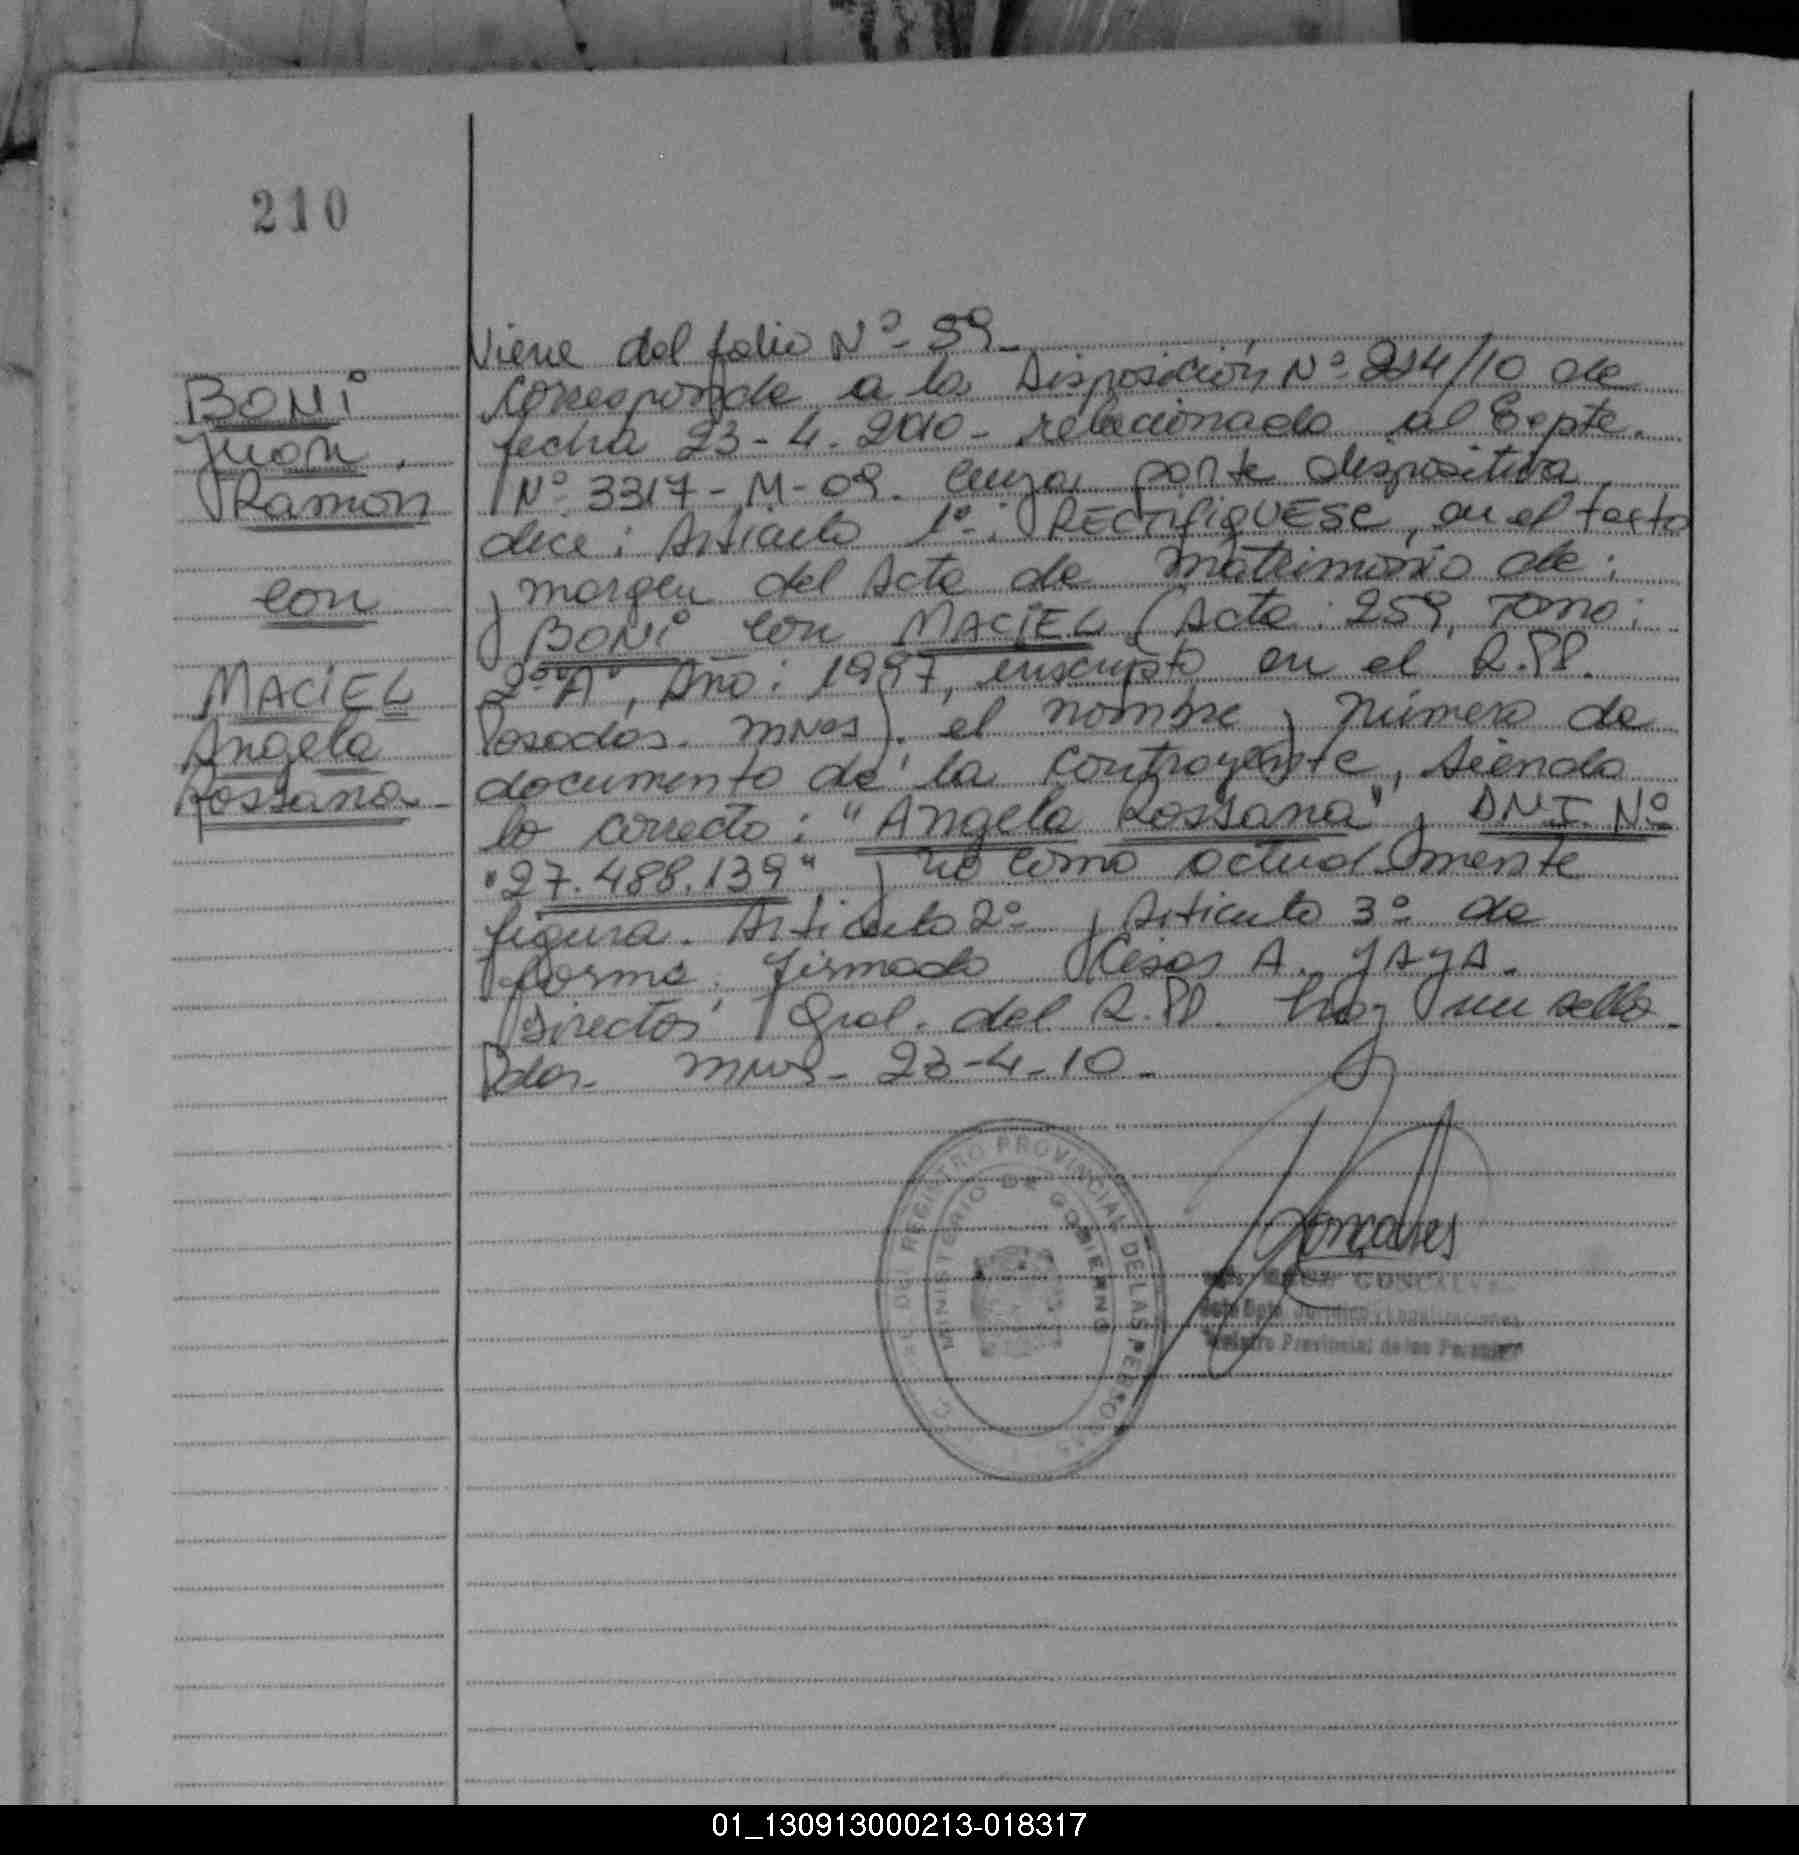 210
BONi
Juan
Ramon
con
MACiEL
Angela
Rossana
Viene del folio Nº 59
Corresponde a la Disposición Nº 214/10 de
fecha 23-4-2010- relacionado al Expte.
Nº 3317-M-09. Cuya parte dispositiva
dice: Articulo 1º: RECTIFIQUESE, en el texto
y margen del Acta de matrimonio de:
BONi con MACiEL (Acta: 259, Tomo:
2º "A", Año: 1997, inscripto en el R.PP.
Posadas. Mnes). el nombre y número de
documento de la contrayente, siendo
lo correcto: "Angela Rossana" y D.N.I. Nº
"27.488.139" y no como actualmente
figura. Articulo 2º y Articulo 3º de
forma. Firmado Cesar A. JAYA.
Director Gral. del R.PP. hay un sello.
Pdas. Mnes- 23-4-10-
DEL REGISTRO PROVINCIAL DE LAS PERSONAS
MINISTERIO DE GOBIERNO
Goncalves
Dpto. Jurídico y Legalizaciones
Registro Provincial de las Personas
01_130913000213-018317